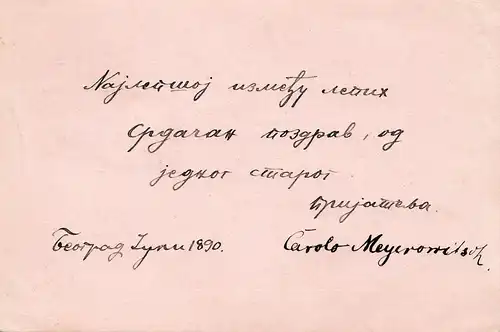 Најлепшој између лепих
срдачан поздрав, од
једног старог
пријатеља.
Београд Јуни 1890. Carolo Meyerowitsch.